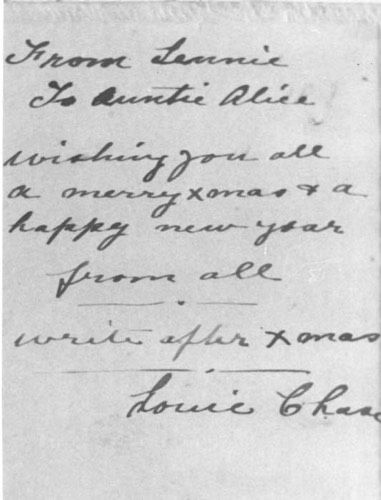 From Lennie
To Auntie Alice
wishing you all
a merry xmas & a
happy new year
from all
write after xmas
Louie Chase